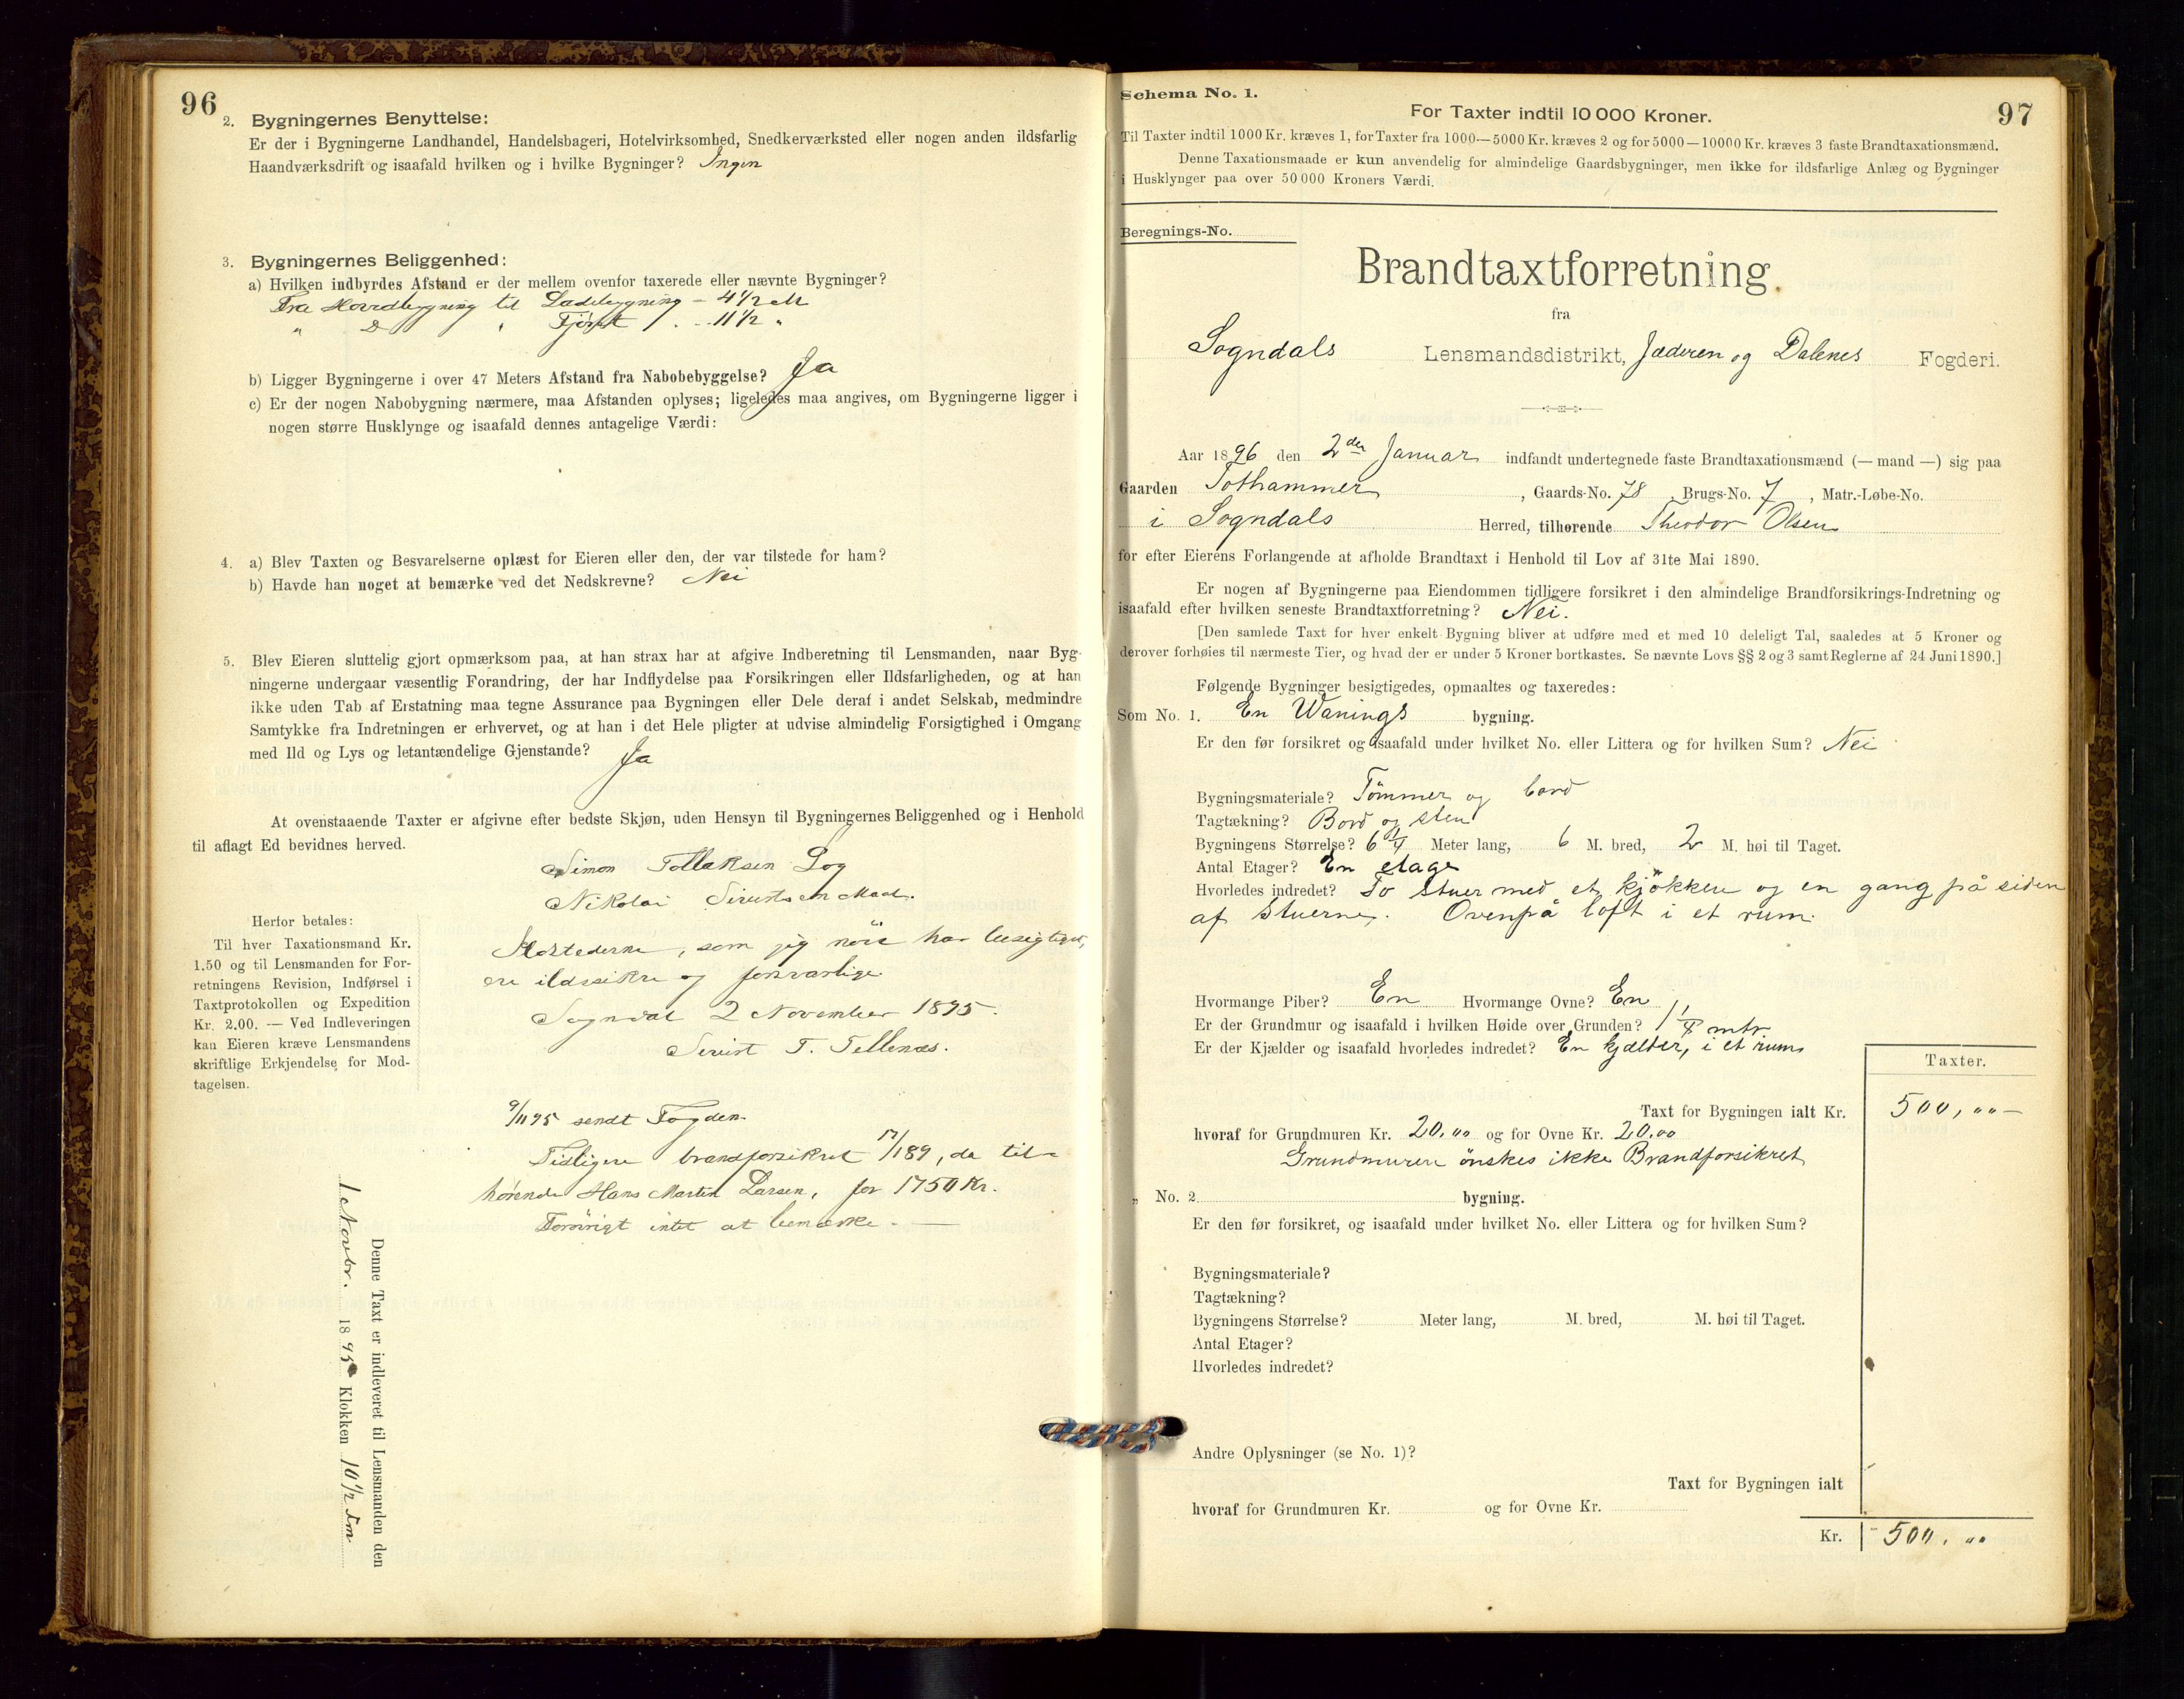 96
2. Bygningernes Benyttelse:
Er der i Bygningerne Landhandel, Handelsbageri, Hotelvirksomhed, Snedkerværksted eller nogen anden ildsfarlig
Haandværksdrift og isaafald hvilken og i hvilke Bygninger? Ingen
3. Bygningernes Beliggenhed:
a) Hvilken indbyrdes Afstand er der mellem ovenfor taxerede eller nævnte Bygninger?
Fra Hovedbygning til Ladebygning - 4 1/2 M
" D " Fjöset . . 11 1/2 "
b) Ligger Bygningerne i over 47 Meters Afstand fra Nabobebyggelse? Ja
c) Er der nogen Nabobygning nærmere, maa Afstanden oplyses; ligeledes maa angives, om Bygningerne ligger i
nogen større Husklynge og isaafald dennes antagelige Værdi:
4. a) Blev Taxten og Besvarelserne oplæst for Eieren eller den, der var tilstede for ham?
b) Havde han noget at bemærke ved det Nedskrevne? Nei
5. Blev Eieren sluttelig gjort opmærksom paa, at han strax har at afgive Indberetning til Lensmanden, naar Byg-
ningerne undergaar væsentlig Forandring, der har Indflydelse paa Forsikringen eller Ildsfarligheden, og at han
ikke uden Tab af Erstatning maa tegne Assurance paa Bygningen eller Dele deraf i andet Selskab, medmindre
Samtykke fra Indretningen er erhvervet, og at han i det Hele pligter at udvise almindelig Forsigtighed i Omgang
med Ild og Lys og letantændelige Gjenstande? Ja
At ovenstaaende Taxter er afgivne efter bedste Skjøn, uden Hensyn til Bygningernes Beliggenhed og i Henhold
til aflagt Ed bevidnes herved.
Simon Tollaksen Log
Nikolai Sivertsen
Herfor betales:
Til hver Taxationsmand Kr.
1.50 og til Lensmanden for For-
retningens Revision, Indførsel i
Taxtprotokollen og Expedition
Kr. 2.00. — Ved Indleveringen
kan Eieren kræve Lensmandens
skriftlige Erkjendelse for Mod-
tagelsen.
Ildstederne, som jeg nöie har besigtiget,
ere ildssikre og forsvarlige.
Sogndal 2 November 1895.
Sivert T. Tellenæs.
9/11 95 sendt Fogden.
Tidligere brandforsikret 17/189, da til-
hørende Hans Martin Larsen, for 1750 Kr.
Forövrigt intet at bemærke. —
Denne Taxt er indleveret til Lensmanden den
1 Novbr. 1895 Klokken 10 1/2 Fm
97
Schema No. 1.
For Taxter indtil 10 000 Kroner.
Til Taxter indtil 1000 Kr. kræves 1, for Taxter fra 1000—5000 Kr. kræves 2 og for 5000—10000 Kr. kræves 3 faste Brandtaxationsmænd.
Denne Taxationsmaade er kun anvendelig for almindelige Gaardsbygninger, men ikke for ildsfarlige Anlæg og Bygninger
i Husklynger paa over 50 000 Kroners Værdi.
Beregnings-No.
Brandtaxtforretning
fra
Sogndals Lensmandsdistrikt, Jæderen og Dalenes Fogderi.
Aar 1896 den 2den Januar indfandt undertegnede faste Brandtaxationsmænd (— mand —) sig paa
Gaarden Tothammer, Gaards-No. 78, Brugs-No. 7, Matr.-Løbe-No.
i Sogndals Herred, tilhørende Theodor Olsen
for efter Eierens Forlangende at afholde Brandtaxt i Henhold til Lov af 31te Mai 1890.
Er nogen af Bygningerne paa Eiendommen tidligere forsikret i den almindelige Brandforsikrings-Indretning og
isaafald efter hvilken seneste Brandtaxtforretning? Nei.
[Den samlede Taxt for hver enkelt Bygning bliver at udføre med et med 10 deleligt Tal, saaledes at 5 Kroner og
derover forhøies til nærmeste Tier, og hvad der er under 5 Kroner bortkastes. Se nævnte Lovs §§ 2 og 3 samt Reglerne af 24 Juni 1890.]
Følgende Bygninger besigtigedes, opmaaltes og taxeredes:
Som No. 1. En Wanings bygning.
Er den før forsikret og isaafald under hvilket No. eller Littera og for hvilken Sum? Nei
Bygningsmateriale? Tömmer og bord
Tagtækning? Bord og sten
Bygningens Størrelse? 6 1/4 Meter lang, 6 M. bred, 2 M. høi til Taget.
Antal Etager? En etage
Hvorledes indredet? To stuer med et kjökken og en gang på siden
af stuerne. Ovenpå loft i et rum.
Hvormange Piber? En Hvormange Ovne? En
Er der Grundmur og isaafald i hvilken Høide over Grunden? 1 1/4 mtr
Er der Kjælder og isaafald hvorledes indredet? En kjælder, i et rum
Taxter.
Taxt for Bygningen ialt Kr. 500,00 —
hvoraf for Grundmuren Kr. 20,00 og for Ovne Kr. 20,00
Grundmuren önskes ikke Brandforsikret
" No. 2 bygning.
Er den før forsikret, og isaafald under hvilket No. eller Littera og for hvilken Sum?
Bygningsmateriale?
Tagtækning?
Bygningens Størrelse? Meter lang, M. bred, M. høi til Taget.
Antal Etager?
Hvorledes indredet?
Andre Oplysninger (se No. 1)?
Taxt for Bygningen ialt
hvoraf for Grundmuren Kr. og for Ovne Kr.
Kr. 500,00